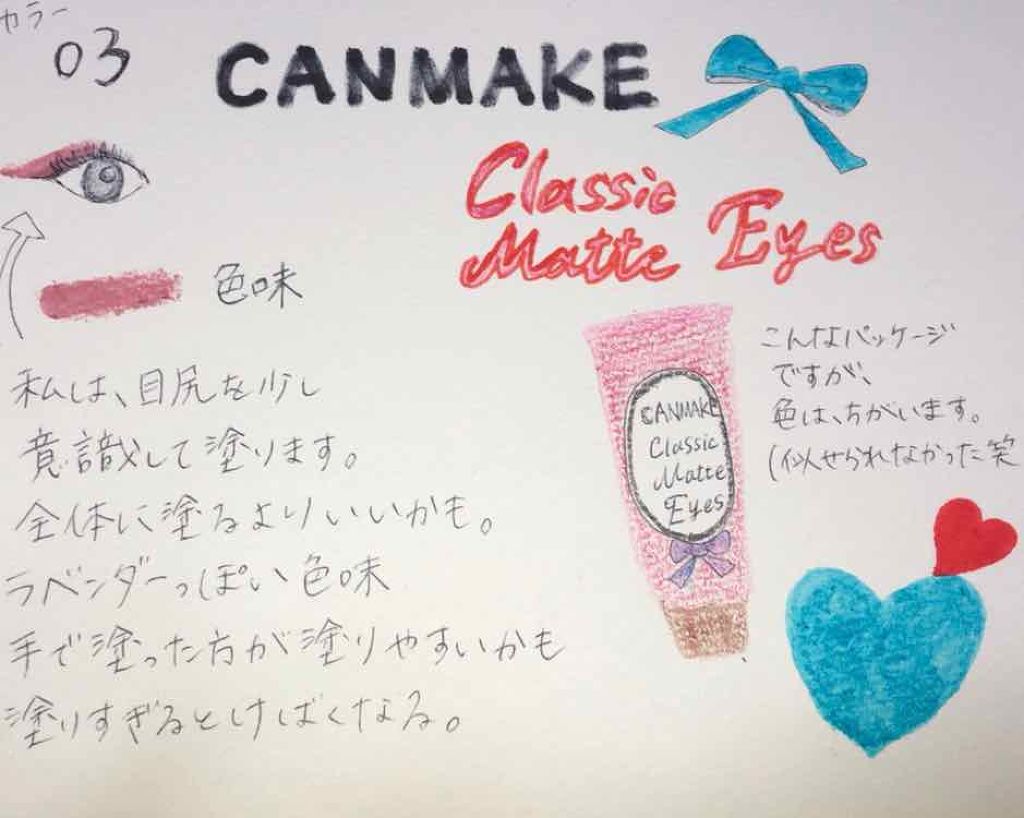 カラー
03
CANMAKE
Classic
Matte Eyes
色味
こんなパッケージ
ですが、
色は、ちがいます。
(似せられなかった笑
CANMAKE
Classic
Matte
Eyes
私は、目尻を少し
意識して塗ります。
全体に塗るよりいいかも。
ラベンダーっぽい色味
手で塗った方が塗りやすいかも
塗りすぎるとけばくなる。